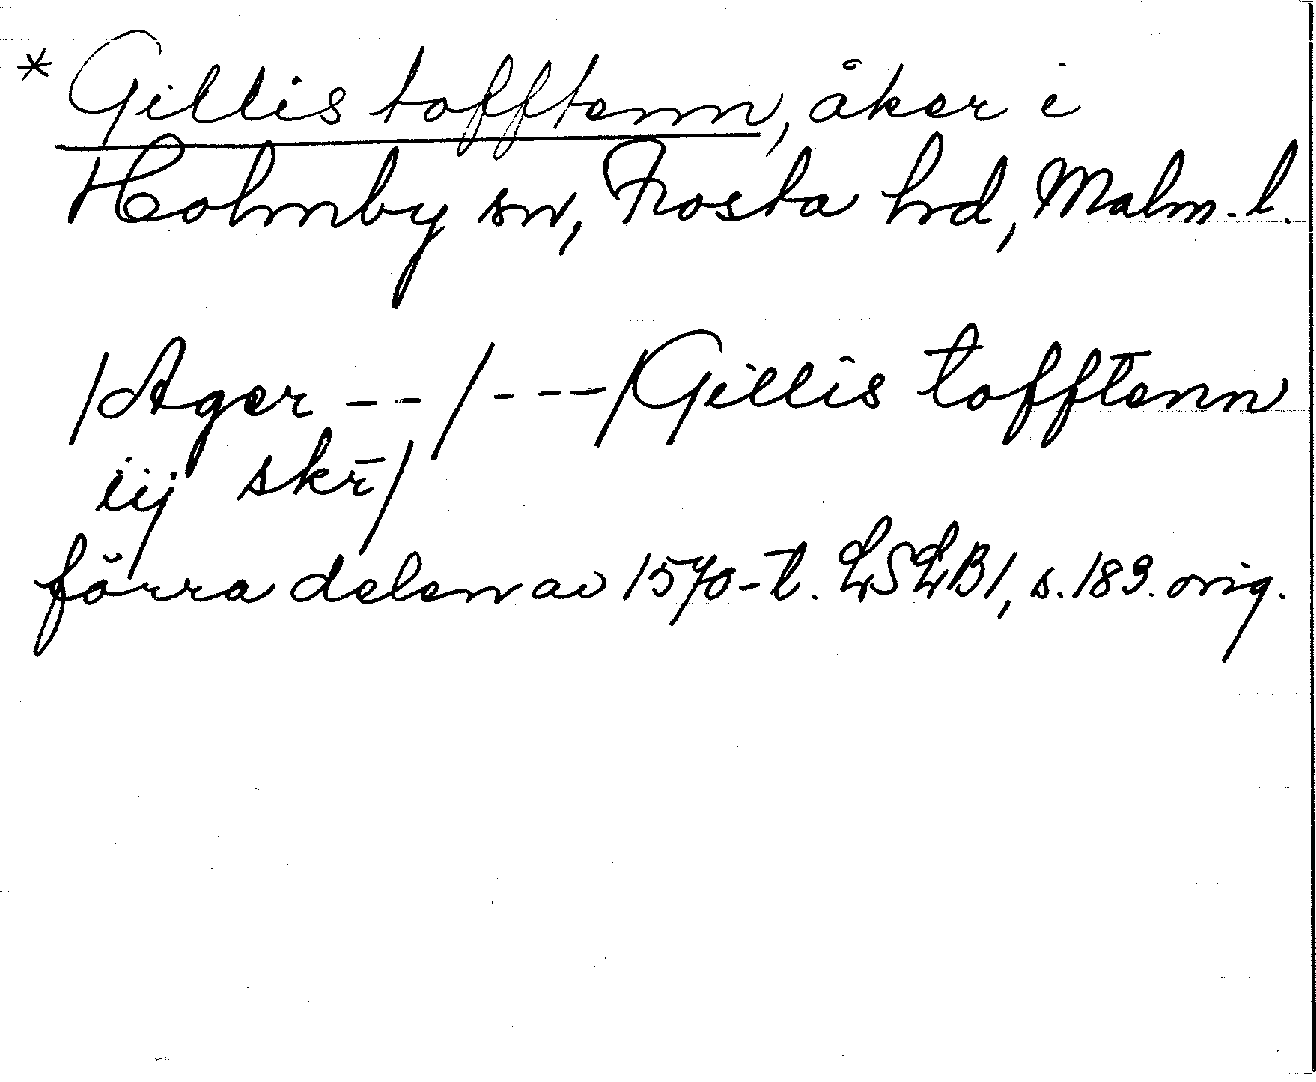 * Gillis tofftenn, åker i
Holmby sn, Frosta hd, Malm. l.
/Ager -- / --- / Gillis tofftenn
iij skr̄ /
förra delen av 1570-t. LSLB1, s. 189. orig.